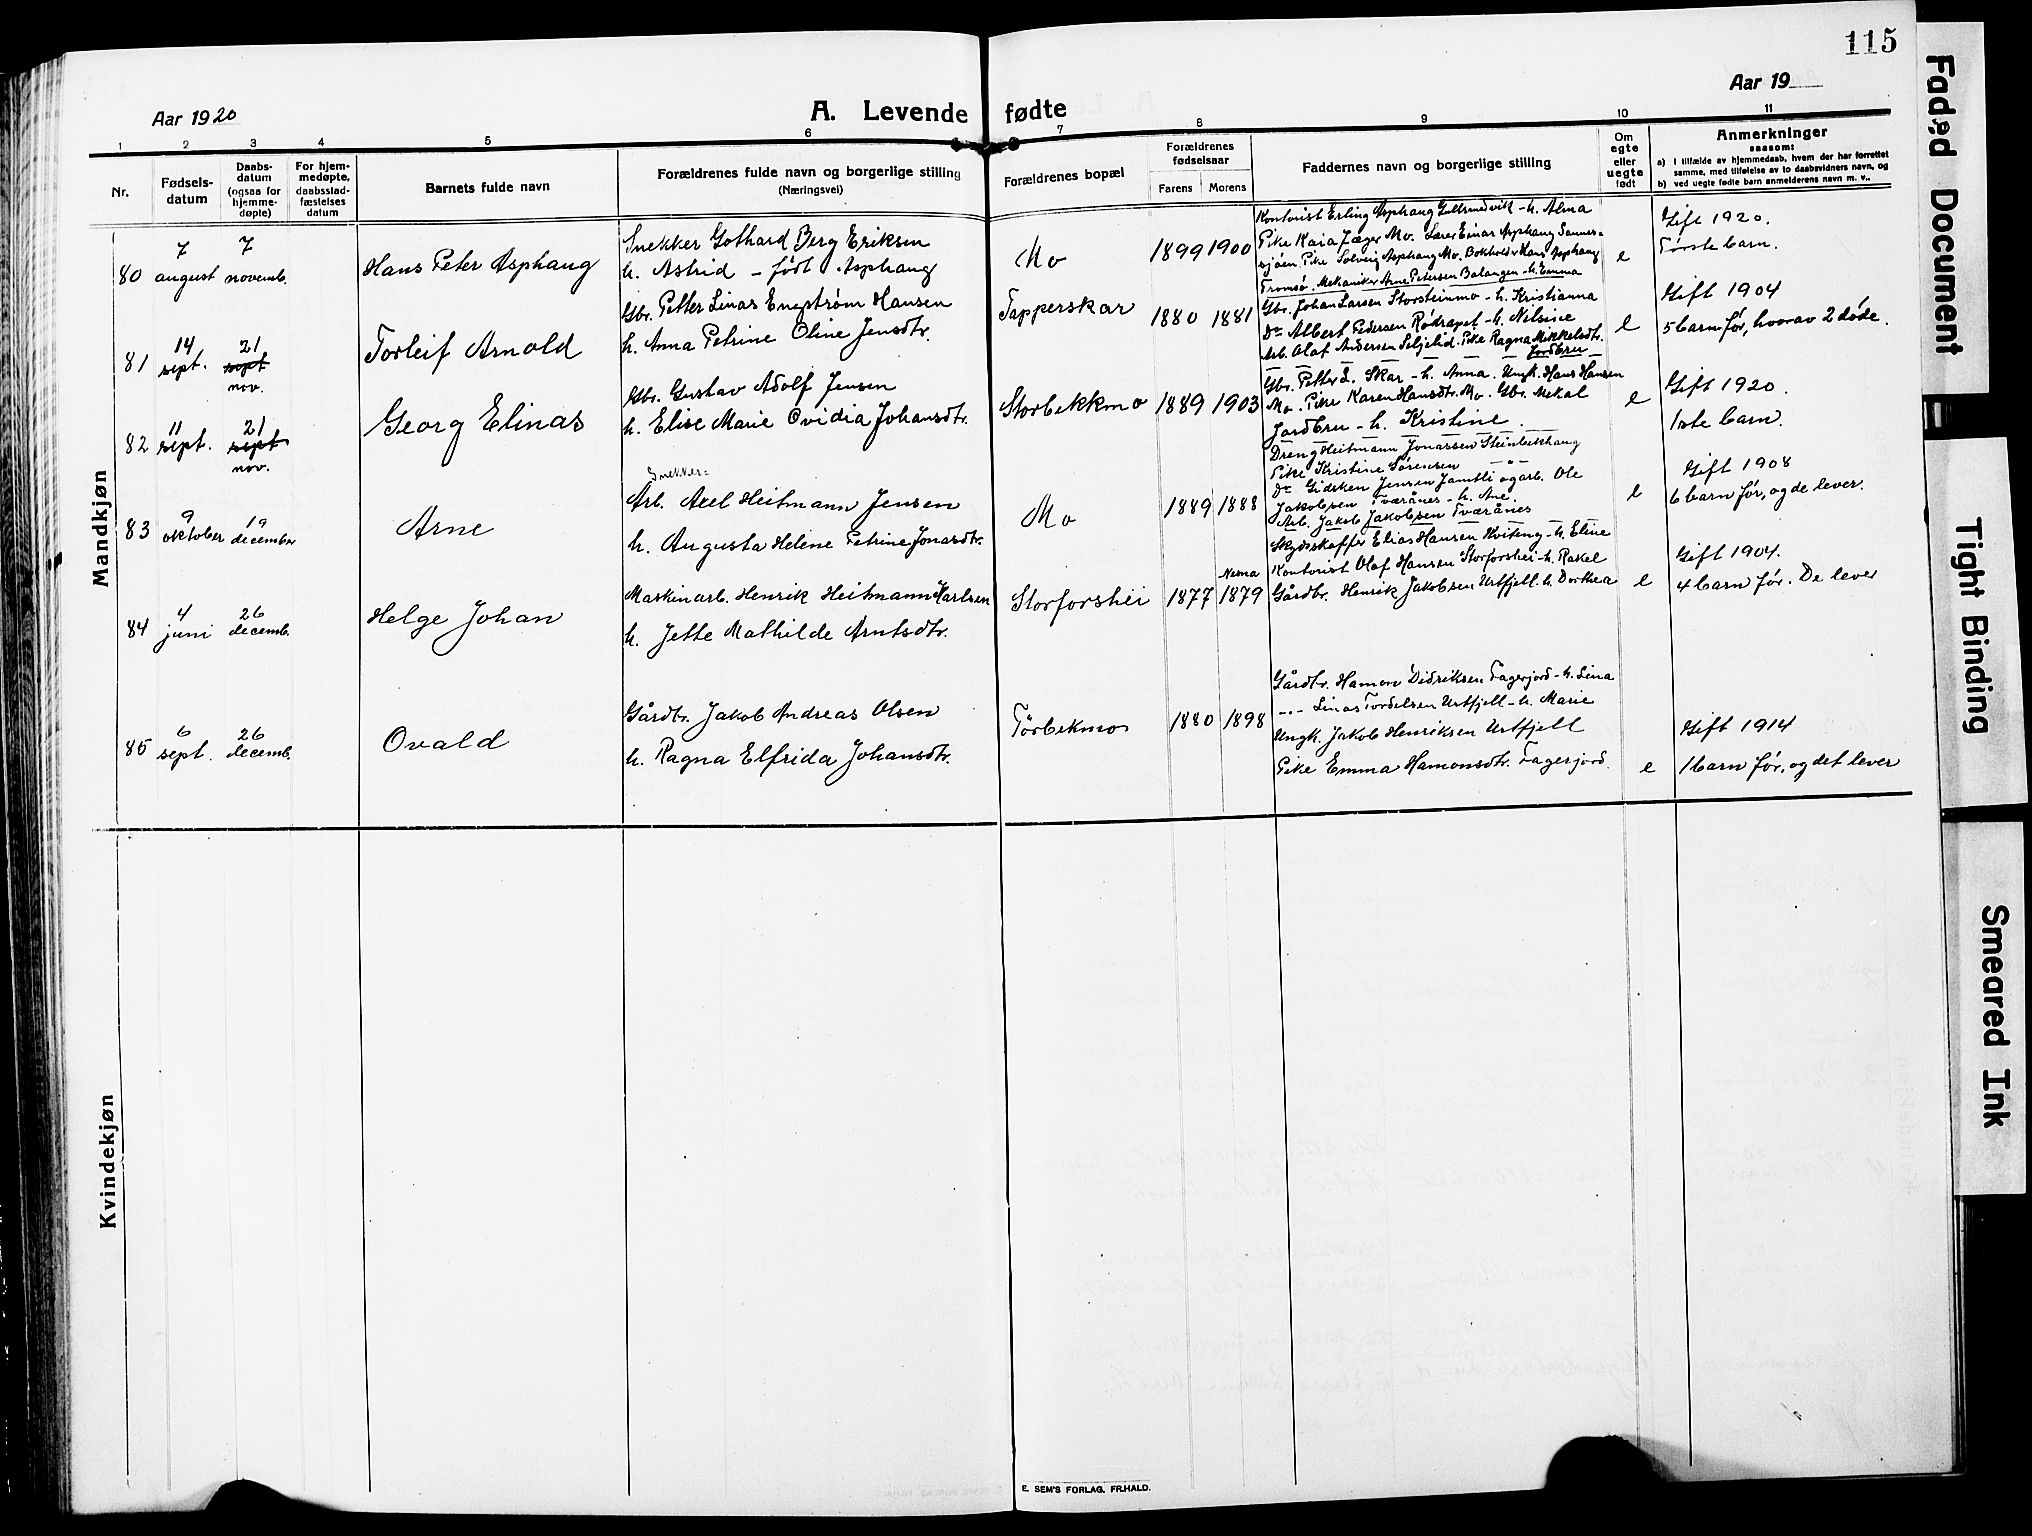 115
Aar 1920
A. Levende fødte
Aar 19
1 2 3 4 5 6 7 8 9 10 11
Nr.
Fødsels-
datum
Daabs-
datum
(ogsaa for
hjemme-
døpte)
For hjem-
medøpte,
daabsstad-
fæstelses
datum
Barnets fulde navn
Forældrenes fulde navn og borgerlige stilling
(Næringsvei)
Forældrenes bopæl
Forældrenes
fødselsaar
Farens Morens
Faddernes navn og borgerlige stilling
Om
egte
eller
uegte
født
Anmerkninger
saasom:
a) I tilfælde av hjemmedaab, hvem der har forrettet
samme, med tilføielse av to daabsvidners navn, og
b) ved uegte fødte barn anmelderens navn m. v..
Mandkjøn
80
7
august
7
novemb.
Hans Peter Asphaug
Snekker Gothard Berg Eriksen
h. Astrid - født Asphaug
Mo
1899 1900
Kontorist Erling Asphaug Gullsmedvik - h. Alma
Pike Kaia Jæger Mo. Lærer Einar Asphaug Sannes-
sjøen. Pike Solveig Asphaug Mo. Bokholder Hans Asphaug
Tromsø. Mekaniker Arne Petersen Balangen - h. Emma
e
Gift 1920.
Første barn.
81
14
sept.
21
sept
nov.
Torleif Arnold
Gbr. Petter Linas Engstrøm Hansen
h. Anna Petrine Oline Jensdtr.
Tapperskar
1880 1881
Gbr. Johan Larsen Storsteinmo - h. Kristianna
Do Albert Pedersen Rødrapet - h. Nelsine
Arb. Olaf Andersen Seljelid. Pike Ragna Mikkelsdtr.
Jordbru
e
Gift 1904
5 barn før, hvorav 2 døde.
82
11
sept.
21
sept
nov.
Georg Elinas
Gbr. Gustav Adolf Jensen
h. Elise Marie Ovidia Johansdtr.
Storbekkmo
1889 1903
Gbr. Petter L. Skar - h. Anna. Ungk. Hans Hansen
Mo. Pike Karen Hansdtr. Mo. Gbr. Mekal
Jordbru - h. Kristine.
e
Gift 1920.
1ste barn.
83
9
oktober
19
december
Arne
Snekker=
Arb. Axel Heitmann Jensen
h. Augusta Helene Petrine Jonasdtr.
Mo
1889 1888
Dreng Heitmann Jonassen Steinbekhaug
Pike Kristine Sørensen
Do Gidsken Jensen Jamtli og arb. Ole
Jakobsen Tverånes - h. Ane.
Arb. Jakob Jakobsen Tverånes
e
Gift 1908
6 barn før, og de lever.
84
4
juni
26
decemb.
Helge Johan
Maskinarb. Henrik Heitmann Karlsen
h. Jette Mathilde Arntsdtr.
Storforshei
1877
Nesna
1879
Skydsskaffer Elias Hansen Hviteng - h. Eline
Kontorist Olaf Hansen Storforshei - h. Rakel
Gårdbr. Henrik Jakobsen Urtfjell - h. Dorthea
e
Gift 1904.
4 barn før. De lever
85
6
sept.
26
decemb.
Ovald
Gårdbr. Jakob Andreas Olsen
h. Ragna Elfrida Johansdtr.
Tørbekmo
1880 1898
Gårdbr. Hamon Didriksen Fagerjord - h. Lina
-"- Linas Tordelsen Urtfjell - h. Marie
Ungk. Jakob Henriksen Urtfjell
Pike Emma Hamonsdtr. Fagerjord.
e
Gift 1914
1 barn før, og det lever
Kvindekjøn
E. SEM'S FORLAG, FR.HALD.
Faded Document
Tight Binding
Smeared Ink